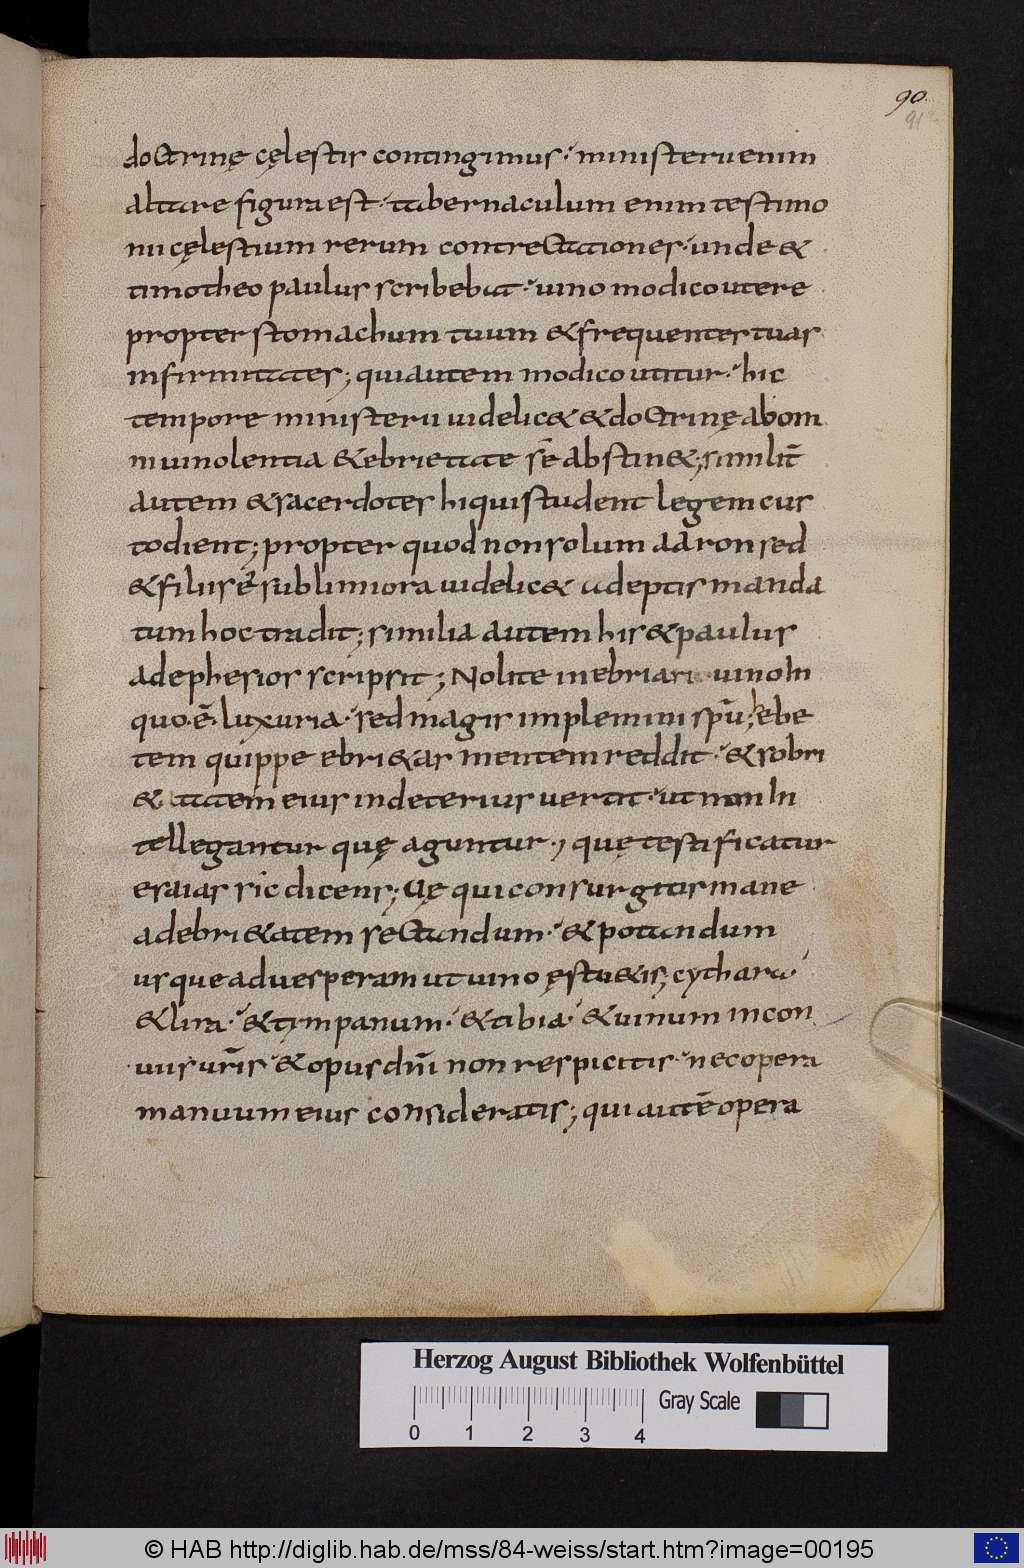 90.
91
doctrinę cęlestis contingimus· ministerii enim
altare figura est· tabernaculum enim testimo
nii cęlestium rerum contrectationes· unde &
timotheo paulus scribebat· uino modico utere
propter stomachum tuum & frequentes tuas
infirmitates; qui autem modico utitur· hic
tempore ministerii uidelic& & doctrinę ab om
ni uinolentia & ebrietate sē abstin&; similit̄
autem & sacerdotes hi qui student legem cus
todient; propter quod non solum aaron sed
& filiis ē sublimiora uidelic& adeptis manda
tum hoc tradit; similia autem his & paulus
ad ephesios scripsit; Nolite inebriari uino In
quo·ē·luxuria· sed magis implemini spū; hebe
tem quippe ebri&as mentem reddit· & sobri
&atem eius in deterius uertit· ut non In
tellegantur quę aguntur, quę testificatur
esaias sic dicens; Uę qui consurgitis mane
ad ebri&atem sectandum· & potandum
usque ad uesperam ut uino ęstu&is; cythara·
& lira· & tympanum· & tibia· & uinum in con
uiis ur̄is & opus dn̄i non respicitis· nec opera
manuum eius consideratis; qui autē opera
Herzog August Bibliothek Wolfenbüttel
Gray Scale
0 1 2 3 4
© HAB http://diglib.hab.de/mss/84-weiss/start.htm?image=00195